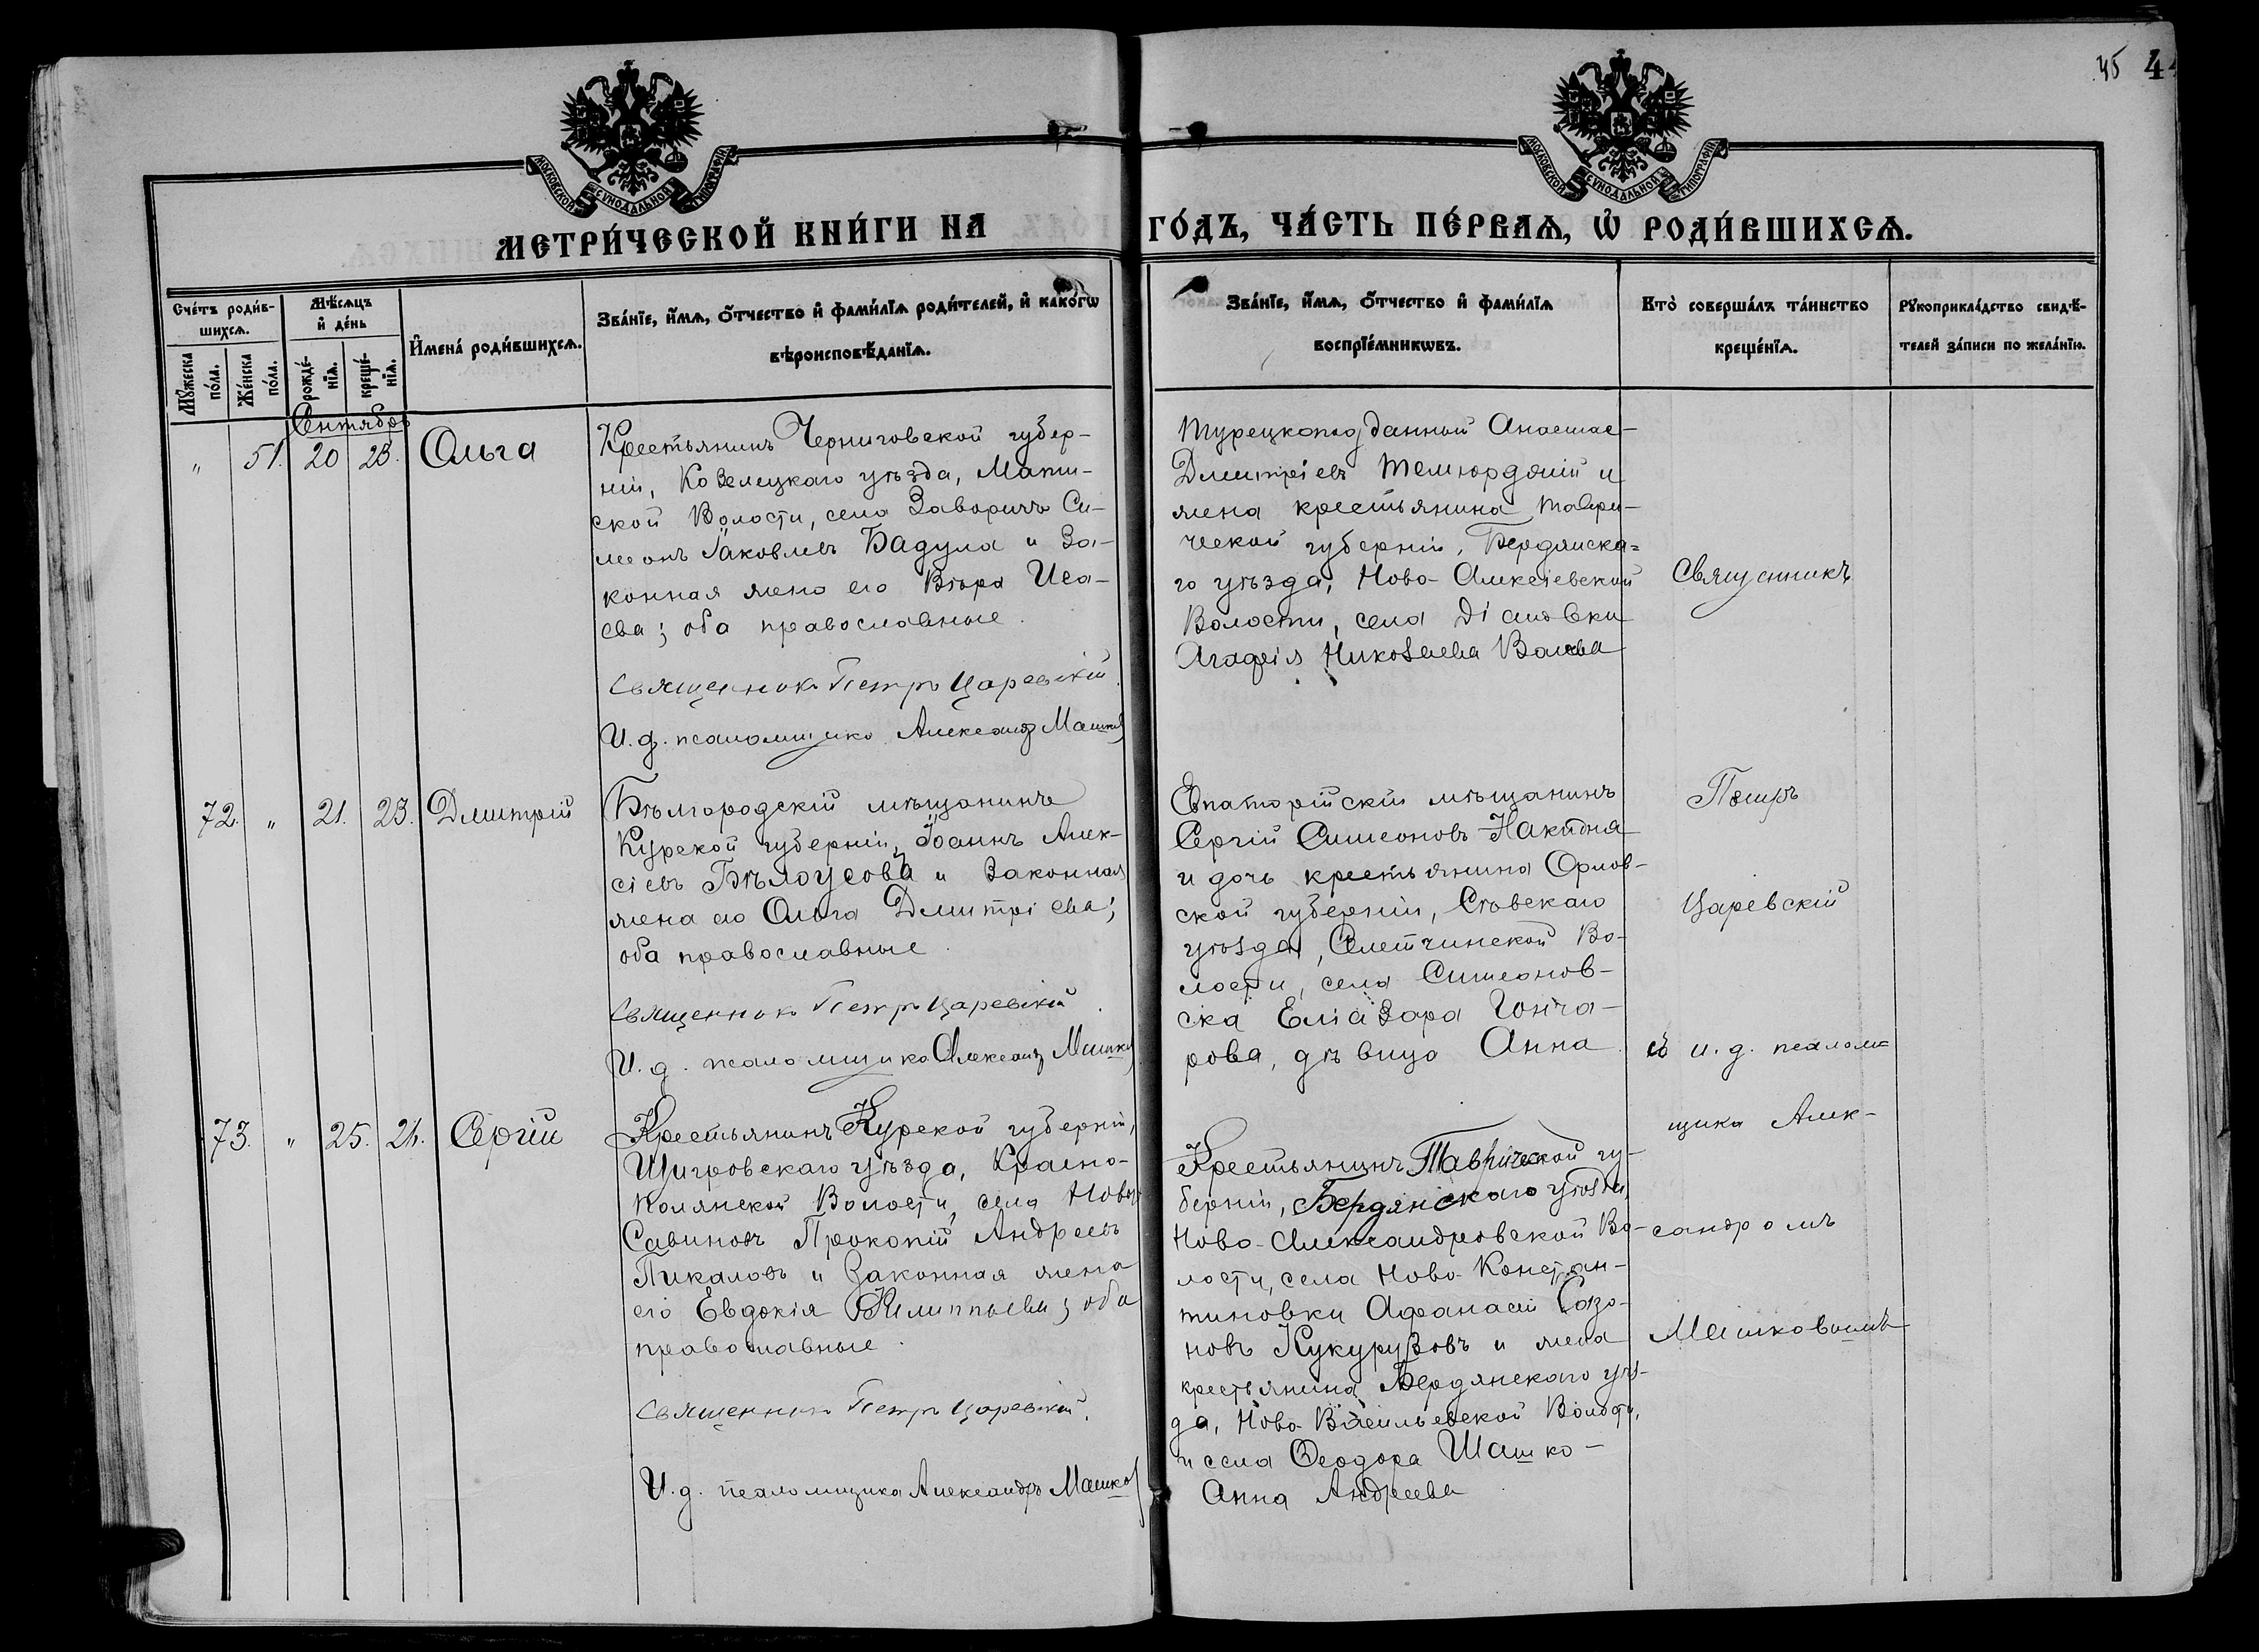 45 44
МОСКОВСКОЙ СѴНОДАЛЬНОЙ ТИПОГРАФІИ
МОСКОВСКОЙ СѴНОДАЛЬНОЙ ТИПОГРАФІИ
МЕТРИ́ЧЕСКОЙ КНИ́ГИ НА ГО́ДЪ, ЧА́СТЬ ПЕ́РВАѦ, Ѡ҆ РОДИ́ВШИХСѦ.
Сче́тъ роди́в-
шихсѧ.
Мꙋ́жеска
по́ла.
Же́нска
по́ла.
Мѣ́сѧцъ
и҆ де́нь
рожде́-
нїѧ.
креще́-
нїѧ.
И҆мена̀ роди́вшихсѧ.
Зва́нїе, и҆́мѧ, ѻ҆́тчество и҆ фамі́лїѧ роди́телей, и҆ како́гѡ
вѣроисповѣ́данїѧ.
Зва́нїе, и҆́мѧ, ѻ҆́тчество и҆ фамі́лїѧ
воспрїе́мникѡвъ.
Кто̀ соверша́лъ та́инство
креще́нїѧ.
Рꙋкоприкла́дство свидѣ́-
телей за́писи по жела́нїю.
Сентябрь
" 51. 20 23. Ольга
Крестьянинъ Черниговской губер-
ніи, Козелецкаго уѣзда,
ской Волости, села Заворичъ Си-
меонъ Іаковлевъ Бадула и за-
конная жена его Вѣра Иса-
ева; оба православные.
Священникъ Петръ Царевскій.
И. д. псаломщика Александръ Машков
Турецкоподданный Анастас-
Дмитріевъ и
жена крестьянина Таври-
ческой губерніи, Бердянска=
го уѣзда, Ново-Алексіевской
Волости, села Діановки
Агафія Николаева
Священникъ
72. " 21. 23. Дмитрій
Бѣлгородскій мѣщанинъ
Курской губерніи, Іоаннъ Алек-
сіевъ Бѣлоусовъ и законная
жена его Ольга Дмитріева;
оба православные.
Священникъ Петръ Царевскій.
И. д. псаломщика Александр Машков
Евпаторійскій мѣщанинъ
Сергій Симеоновъ Накидня
и дочь крестьянина Орлов-
ской губерніи, Сѣвскаго
уѣзда, Во-
лости, села Симеонов-
ска Еліазара Гонча-
рова, дѣвица Анна.
Петръ
Царевскій
съ и. д. псалом=
73. " 25. 21. Сергій
Крестьянинъ Курской губерніи,
Щигровскаго уѣзда, Красно-
Полянской Волости, села Новы
Савиновъ Прокопій Андреевъ
Пикаловъ и законная жена
его Евдокія Филиппьева; оба
православные.
Священникъ Петръ Царевскій.
И. д. псаломщика Александръ Машков
Крестьянинъ Таврической гу-
берніи, Бердянскаго уѣзда,
Ново-Александровской Во-
лости, села Ново-Констан-
тиновки Афанасій Созо-
новъ Кукурузовъ и жена
крестьянина Бердянскаго уѣз-
да, Ново-Васильевской Волости,
и села Ѳеодора Шашко-
Анна Андреева
щика Алек-
сандромъ
Машковымъ